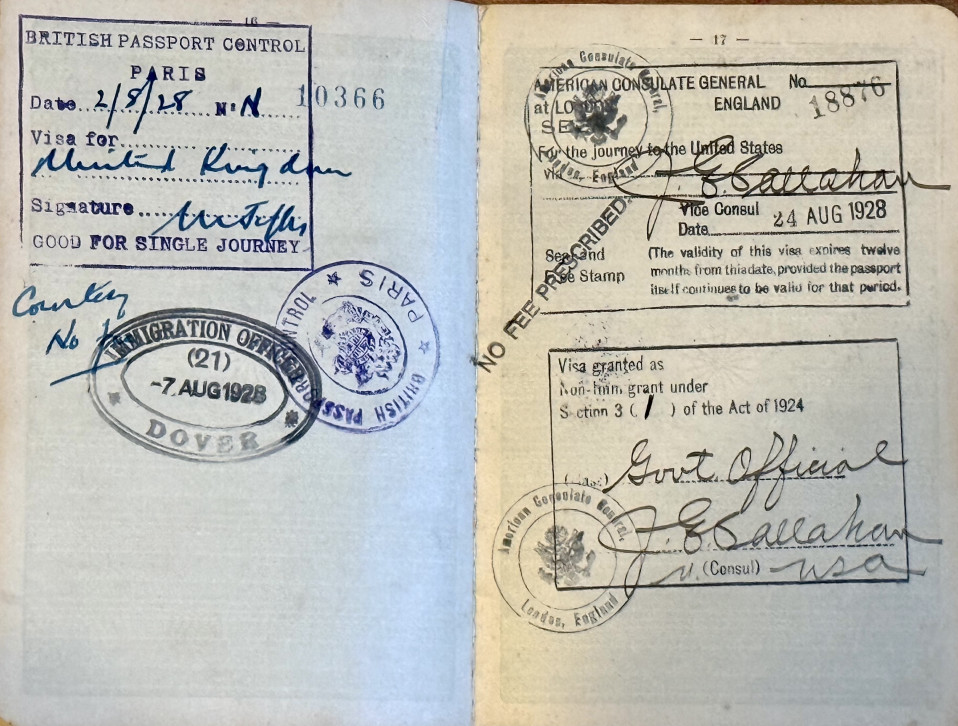 — 16 —
BRITISH PASSPORT CONTROL
PARIS
Date 2/8/28 No N 10366
Visa for
United Kingdom
Signature
GOOD FOR SINGLE JOURNEY
Courtesy
No
IMMIGRATION OFFICER
(21)
-7 AUG 1928
DOVER
BRITISH PASSPORT CONTROL
PARIS
— 17 —
AMERICAN CONSULATE GENERAL No 18876
at LONDON ENGLAND
SEEN
For the journey to the United States
via
J. E. Callahan
Vice Consul
Date 24 AUG 1928
Seal and
Fee Stamp
(The validity of this visa expires twelve
months from this date, provided the passport
itself continues to be valid for that period.
American Consulate General,
London, England
NO FEE PRESCRIBED.
Visa granted as
Non-Immigrant under
Section 3 ( 1 ) of the Act of 1924
Govt. Official
J. E. Callahan
V. (Consul) USA
American Consulate General,
London, England